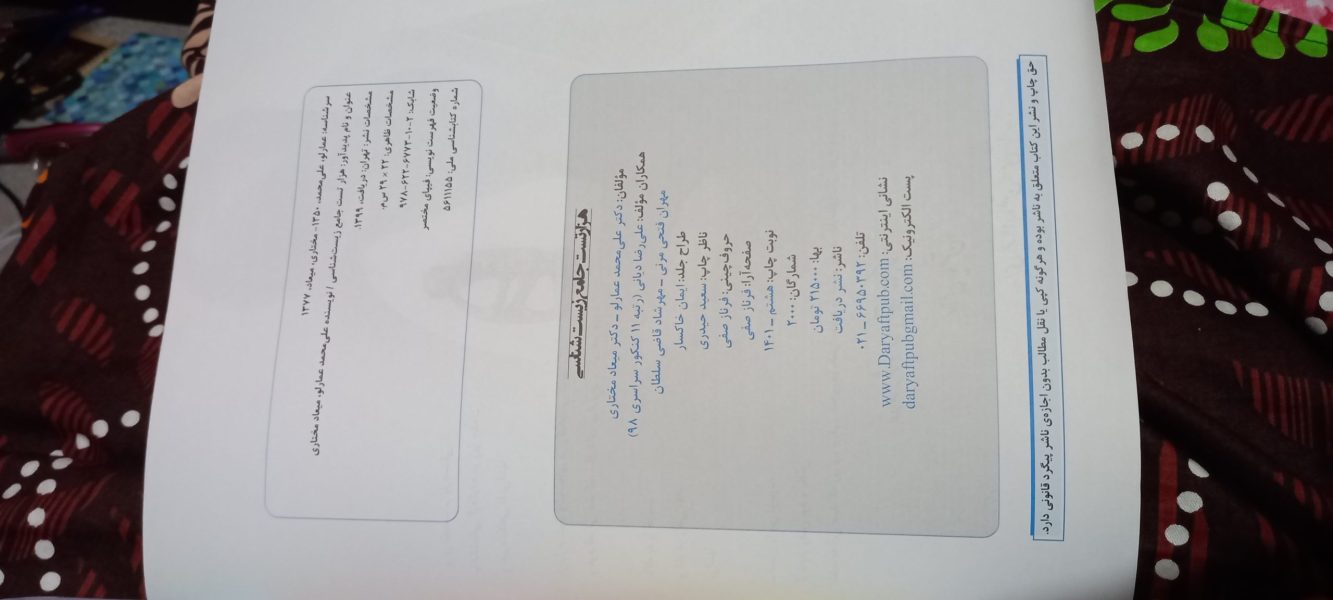 سرشناسه: عمارلو، علی‌محمد، ۱۳۵۰- مختاری، میعاد، ۱۳۷۷
عنوان و نام پدیدآور: هزار تست جامع زیست‌شناسی / نویسنده علی‌محمد عمارلو، میعاد مختاری
مشخصات نشر: تهران: دریافت، ۱۳۹۹.
مشخصات ظاهری: ۲۲ × ۲۹ س‌م.
شابک: ۲-۱۰-۶۷۷۳-۶۲۲-۹۷۸
وضعیت فهرست نویسی: فیپای مختصر
شماره کتابشناسی ملی: ۵۶۱۱۱۵۵
هزار تست جامع زیست شناسی
مؤلفان: دکتر علی‌محمد عمارلو ـ دکتر میعاد مختاری
همکاران مؤلف: علی‌رضا دیانی (رتبه ۱۱ کنکور سراسری ۹۸)
مهران فتحی مرنی ـ مهرشاد قاضی سلطان
طراح جلد: ایمان خاکسار
ناظر چاپ: سعید حیدری
حروف‌چینی: فرناز صفی
صفحه‌آرا: فرناز صفی
نوبت چاپ: هشتم ـ ۱۴۰۱
شمارگان: ۲۰۰۰
بها: ۲۱۵۰۰۰ تومان
ناشر: نشر دریافت
تلفن: ۶۶۹۵۰۳۹۲ ـ ۰۲۱
نشانی اینترنتی: www.Daryaftpub.com
پست الکترونیک: daryaftpubgmail.com
حق چاپ و نشر این کتاب متعلق به ناشر بوده و هرگونه کپی یا نقل مطالب بدون اجازه‌ی ناشر پیگرد قانونی دارد.